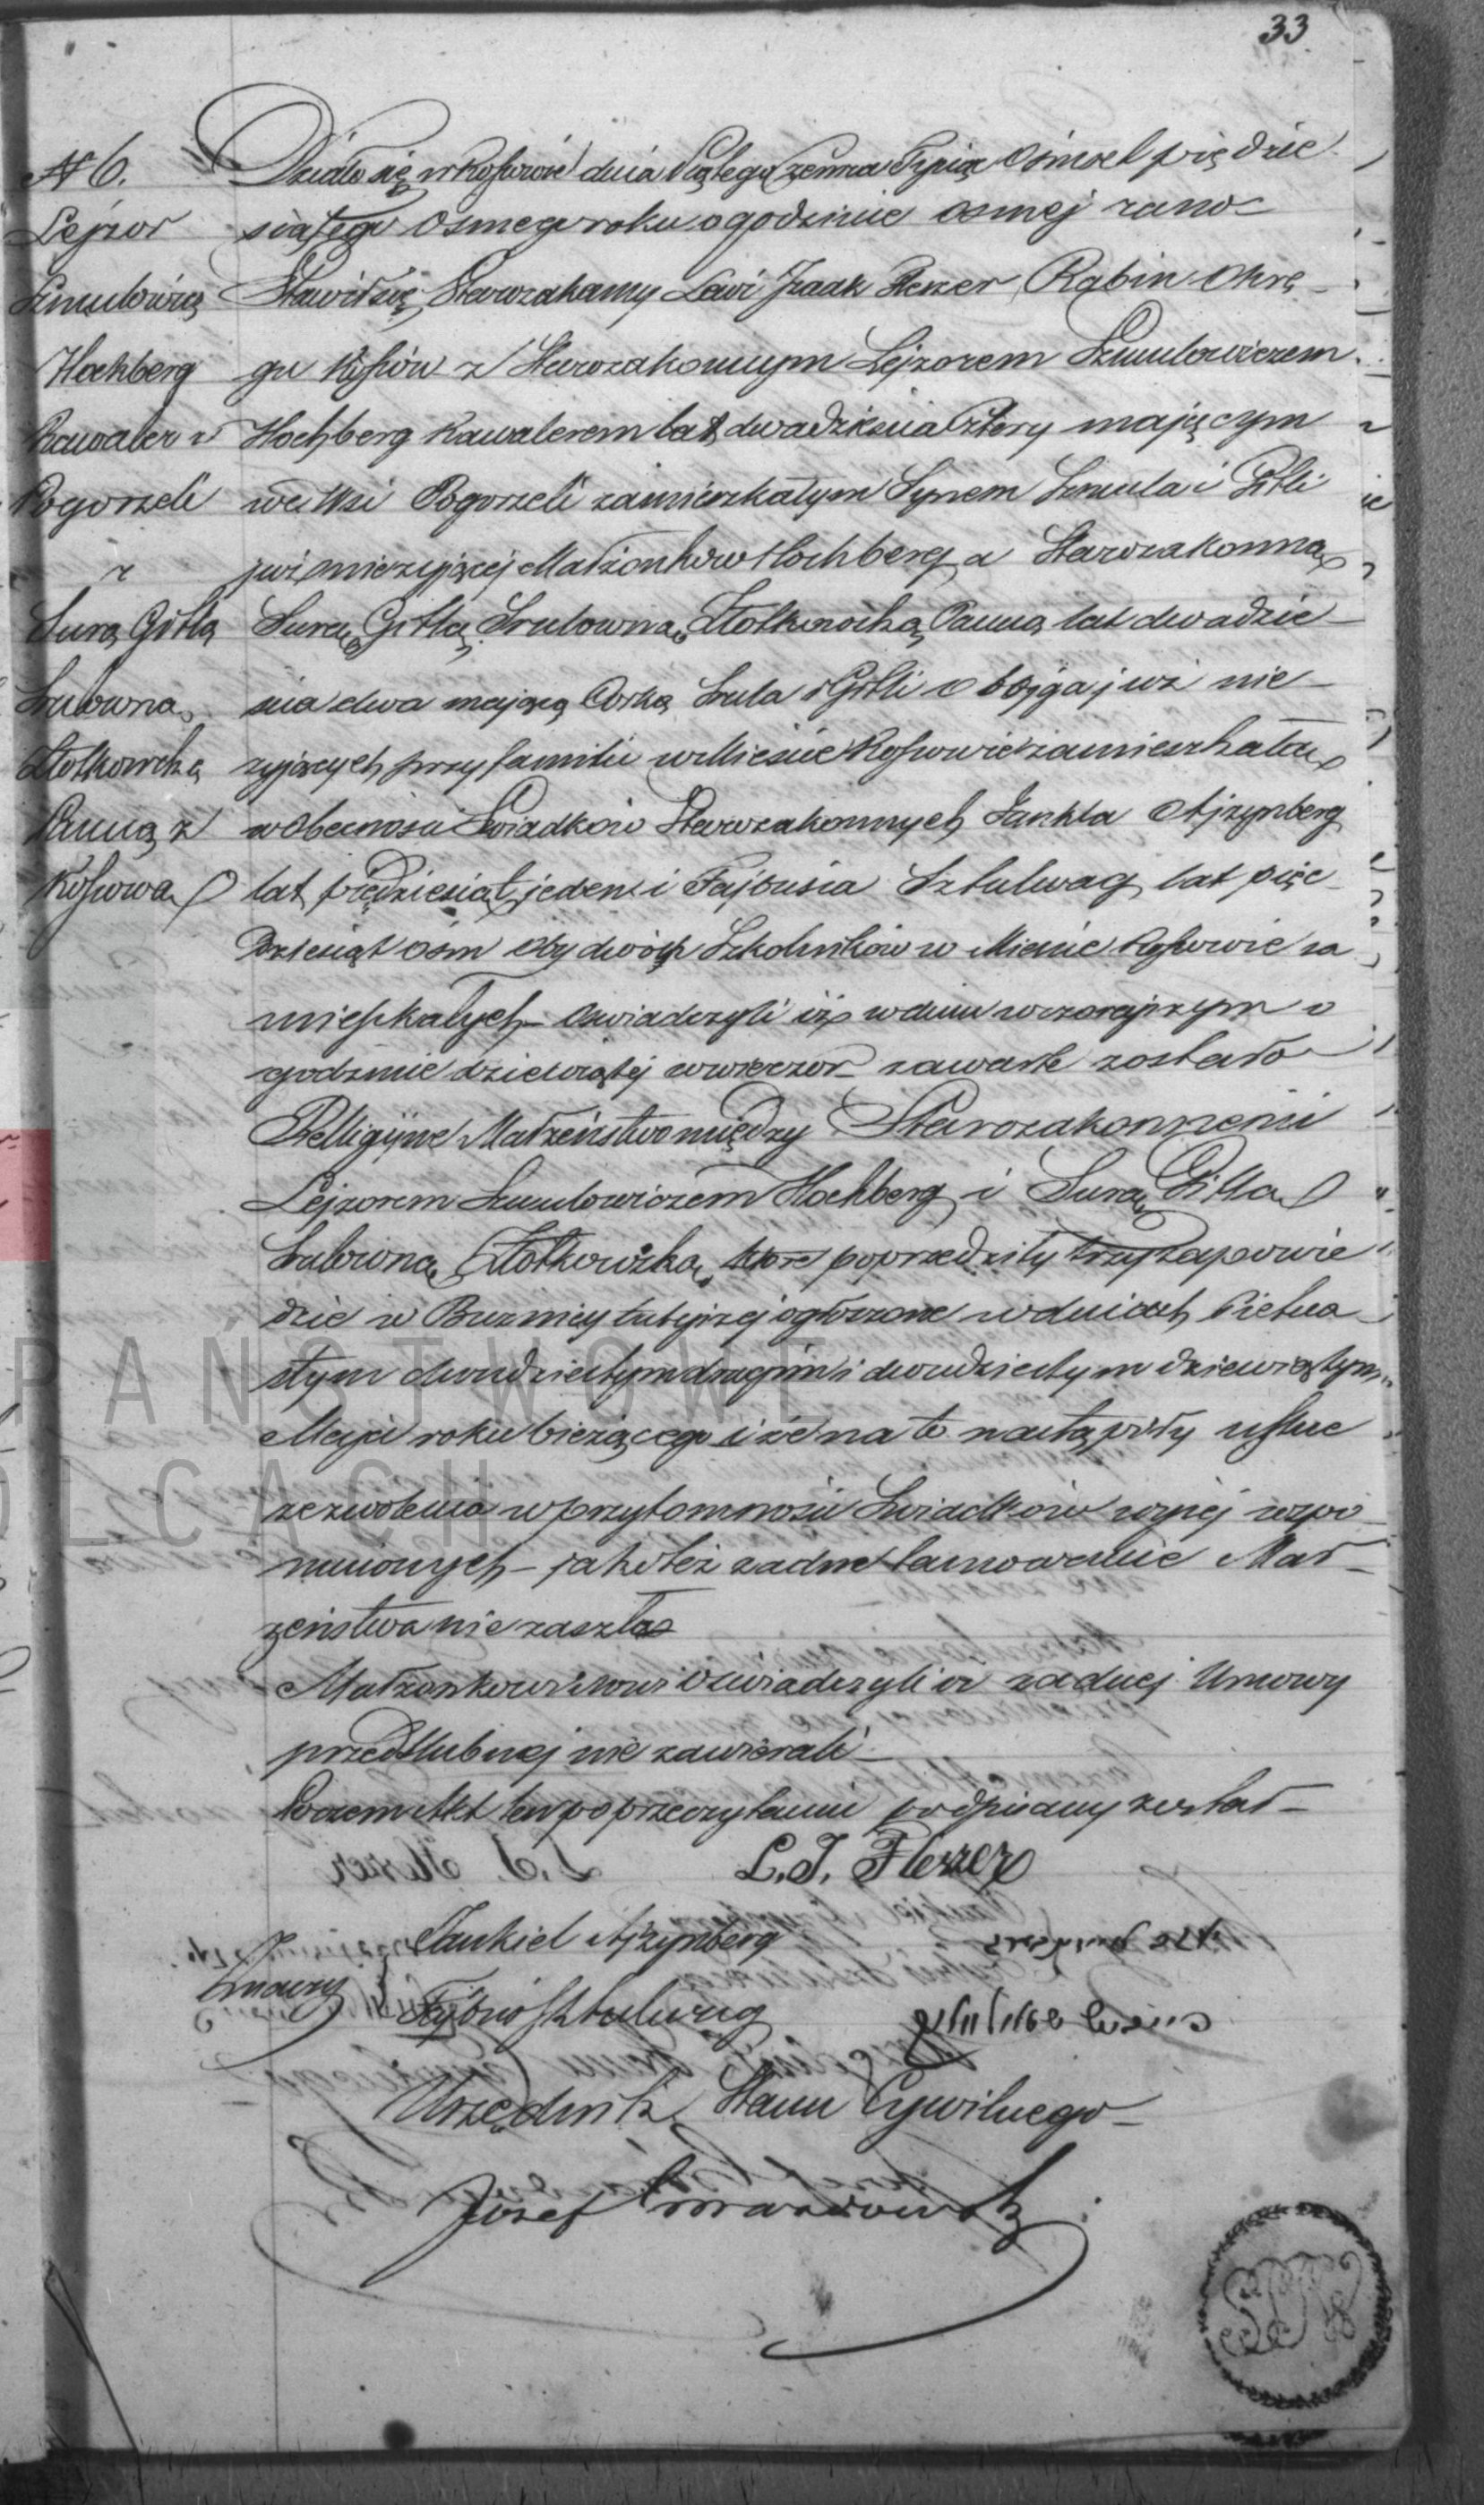 33
N 6.
Lejzor
Szmulowicz
Hochberg
Kawaler z
Pogorzeli
z
Surą Gitlą
Srulowną
Złotkowską
Panną z
Kossowa
Działo się w Kossowie dnia Piątego Czerwca Tysiąc Osmset pięćdzie
siątego Osmego roku o godzinie osmej rano
Stawił się Starozakonny Lewi Jzaak Flerzer Rabin Okrę
gu Kossów z Starozakonnym Lejzorem Szmulowiczem
Hochberg Kawalerem lat dwadzieścia cztery mającym
we Wsi Pogorzeli zamieszkałym Synem Szmula i Gitli
już nieżyjącej Małżonków Hochberg a Starozakonną
Surą Gitlą Srulowną Złotkowską Panną lat dwadzie
ścia dwa mającą Córką Srula i Gitli obojga już nie
żyjących przy familii w Mieście Kossowie zamieszkałą
w obecności Świadków Starozakonnych Jankla Ajzynberg
lat pięćdziesiąt jeden i Fajbusia Sztulwag lat pięć
dziesiąt ośm obydwóch Szkolników w Mieście Kossowie za
mieszkałych oświadczyli iż w dniu wczorajszym o
godzinie dziewiątej wieczor zawarte zostało
Relligijne Małżeństwo między Starozakonnemi
Lejzorem Szmulowiczem Hochberg i Surą Gitlą
Srulowną Złotkowską, które poprzedziły trzy zapowie
dzie w Buznicy tutejszej ogłoszone w dniach Pietna
stym dwudziestym drugim i dwudziestym dziewiątym
Maja roku bieżącego i że na to nastąpiły ustne
zezwolenia w przytomności Świadków wyżej wspo
mnionych jakoteż żadne tamowanie Mał
żeństwa nie zaszło
Małżonkowie nowi oświadczyli iż żadnej Umowy
przedślubnej nie zawierali
Poczem Akt ten po przeczytaniu podpisany został
L. J. Flerzer
Jankiel Ajzynberg
znaczy
Fajbuś Sztulwag
Urzędnik Stanu Cywilnego
Józef